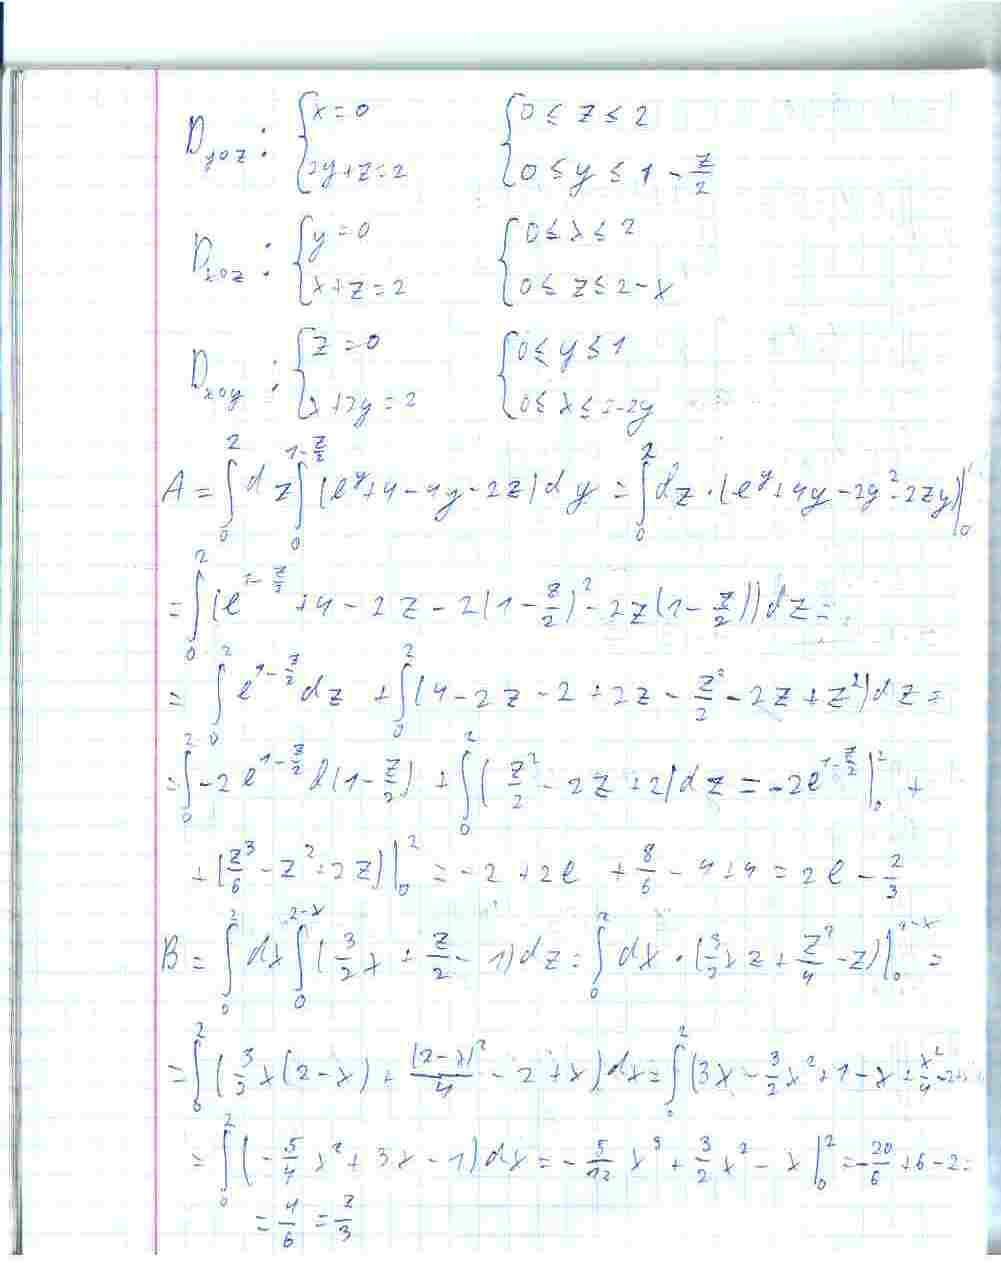 D_yoz : { x = 0 ; 2y + z = 2 { 0 ≤ z ≤ 2 ; 0 ≤ y ≤ 1 - z/2
D_xoz : { y = 0 ; x + z = 2 { 0 ≤ x ≤ 2 ; 0 ≤ z ≤ 2 - x
D_xoy : { z = 0 ; x + 2y = 2 { 0 ≤ y ≤ 1 ; 0 ≤ x ≤ 2 - 2y
A = ∫_0^2 dz ∫_0^{1-z/2} (e^y + 4 - 4y - 2z) dy = ∫_0^2 dz · (e^y + 4y - 2y^2 - 2zy)|_0
= ∫_0^2 (e^{1-z/2} + 4 - 2z - 2(1 - z/2)^2 - 2z(1 - z/2)) dz =
= ∫_0^2 e^{1-z/2} dz + ∫_0^2 (4 - 2z - 2 + 2z - z^2/2 - 2z + z^2) dz =
= ∫_0^2 -2e^{1-z/2} d(1 - z/2) + ∫_0^2 (z^2/2 - 2z + 2) dz = -2e^{1-z/2}|_0^2 +
+ (z^3/6 - z^2 + 2z)|_0^2 = -2 + 2e + 8/6 - 4 + 4 = 2e - 2/3
B = ∫_0^2 dx ∫_0^{2-x} (3/2 x + z/2 - 1) dz = ∫_0^2 dx · (3/2 xz + z^2/4 - z)|_0^{2-x} =
= ∫_0^2 (3/2 x(2 - x) + (2-x)^2/4 - 2 + x) dx = ∫_0^2 (3x - 3/2 x^2 + 1 - x + x^2/4 - 2 +
= ∫_0^2 (-5/4 x^2 + 3x - 1) dx = -5/12 x^3 + 3/2 x^2 - x|_0^2 = -20/6 + 6 - 2 =
= 4/6 = 2/3